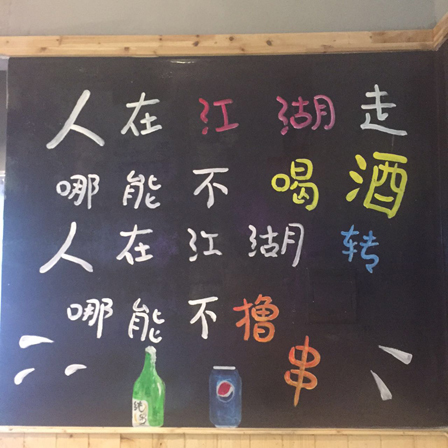 人在江湖走
哪能不喝酒
人在江湖转
哪能不撸串